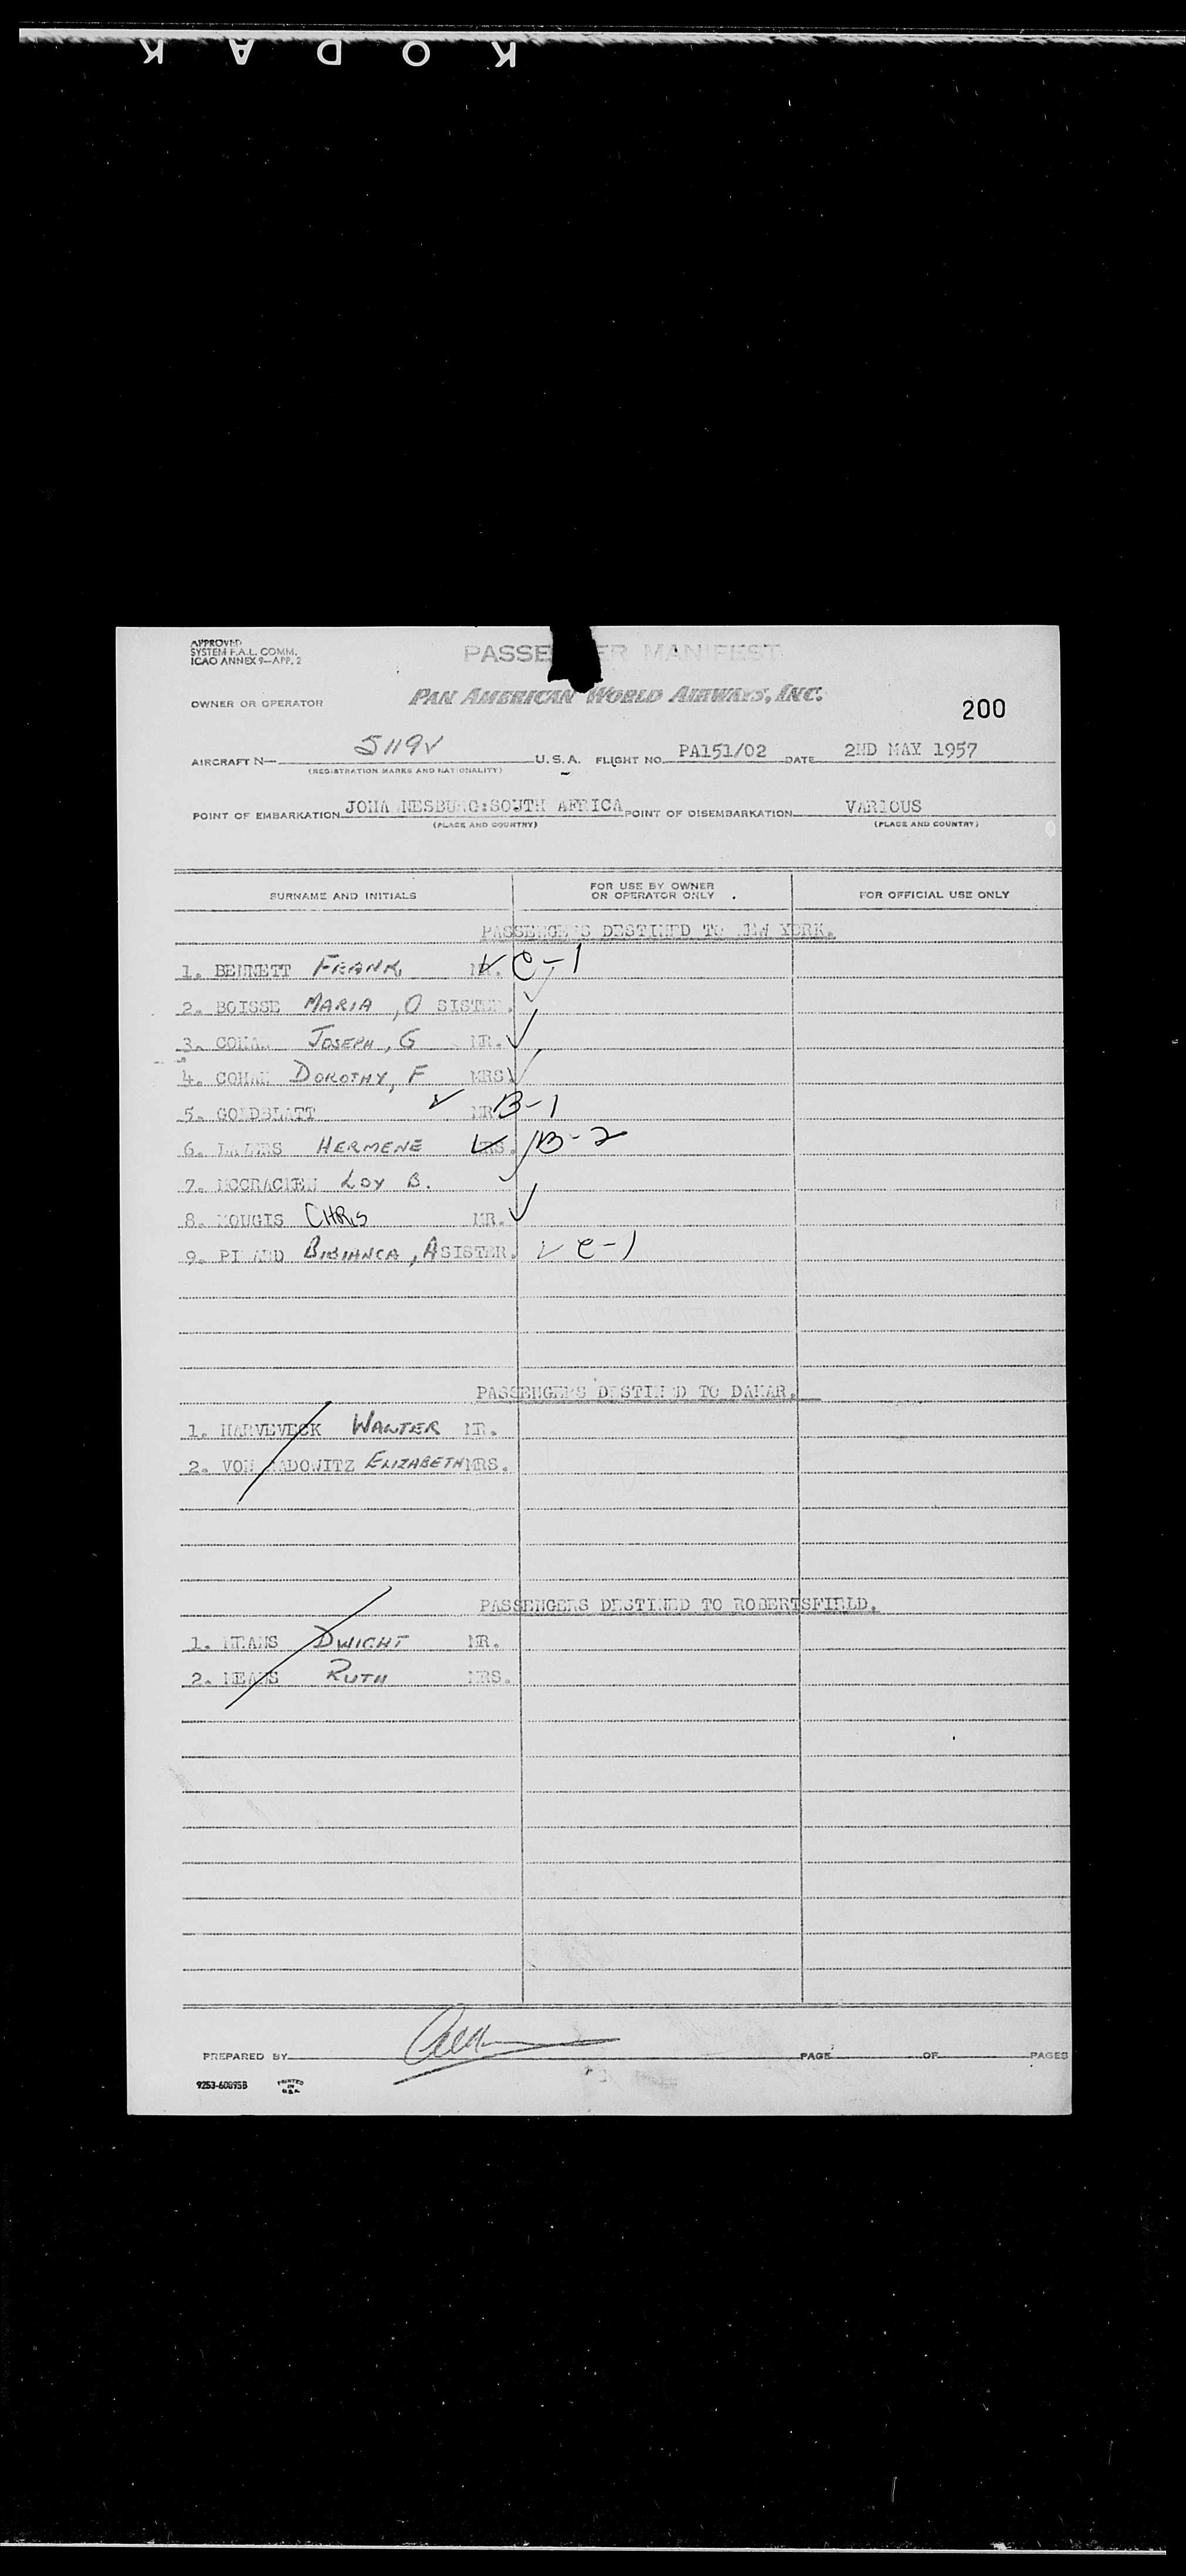 KODAK
APPROVED
SYSTEM F.A.L. COMM.
ICAO ANNEX 9—APP. 2
PASSENGER MANIFEST
OWNER OR OPERATOR PAN AMERICAN WORLD AIRWAYS, INC.
200
AIRCRAFT N— 5119V U.S.A. FLIGHT NO. PA151/02 DATE 2ND MAY 1957
(REGISTRATION MARKS AND NATIONALITY)
POINT OF EMBARKATION JOHANNESBURG:SOUTH AFRICA POINT OF DISEMBARKATION VARIOUS
(PLACE AND COUNTRY) (PLACE AND COUNTRY)
SURNAME AND INITIALS FOR USE BY OWNER OR OPERATOR ONLY. FOR OFFICIAL USE ONLY
PASSENGERS DESTINED TO NEW YORK.
1. BENNETT FRANK MR. C-1
2. BOISSE MARIA, O SISTER.
3. COHAN JOSEPH, G MR.
4. COHAN DOROTHY, F MRS
5. GOLDBLATT MR B-1
6. HERMENE MRS. B-2
7. MCCRACKEN LOY B.
8. MOUGIS CHRIS MR.
9. BIBIANCA, A SISTER. C-1
PASSENGERS DESTINED TO DAKAR.
1. HARVEVECK WALTER MR.
2. VON RADOWITZ ELIZABETH MRS.
PASSENGERS DESTINED TO ROBERTSFIELD.
1. MEANS DWIGHT MR.
2. MEANS RUTH MRS.
PREPARED BY PAGE OF PAGES
9253-60895B PRINTED IN U.S.A.